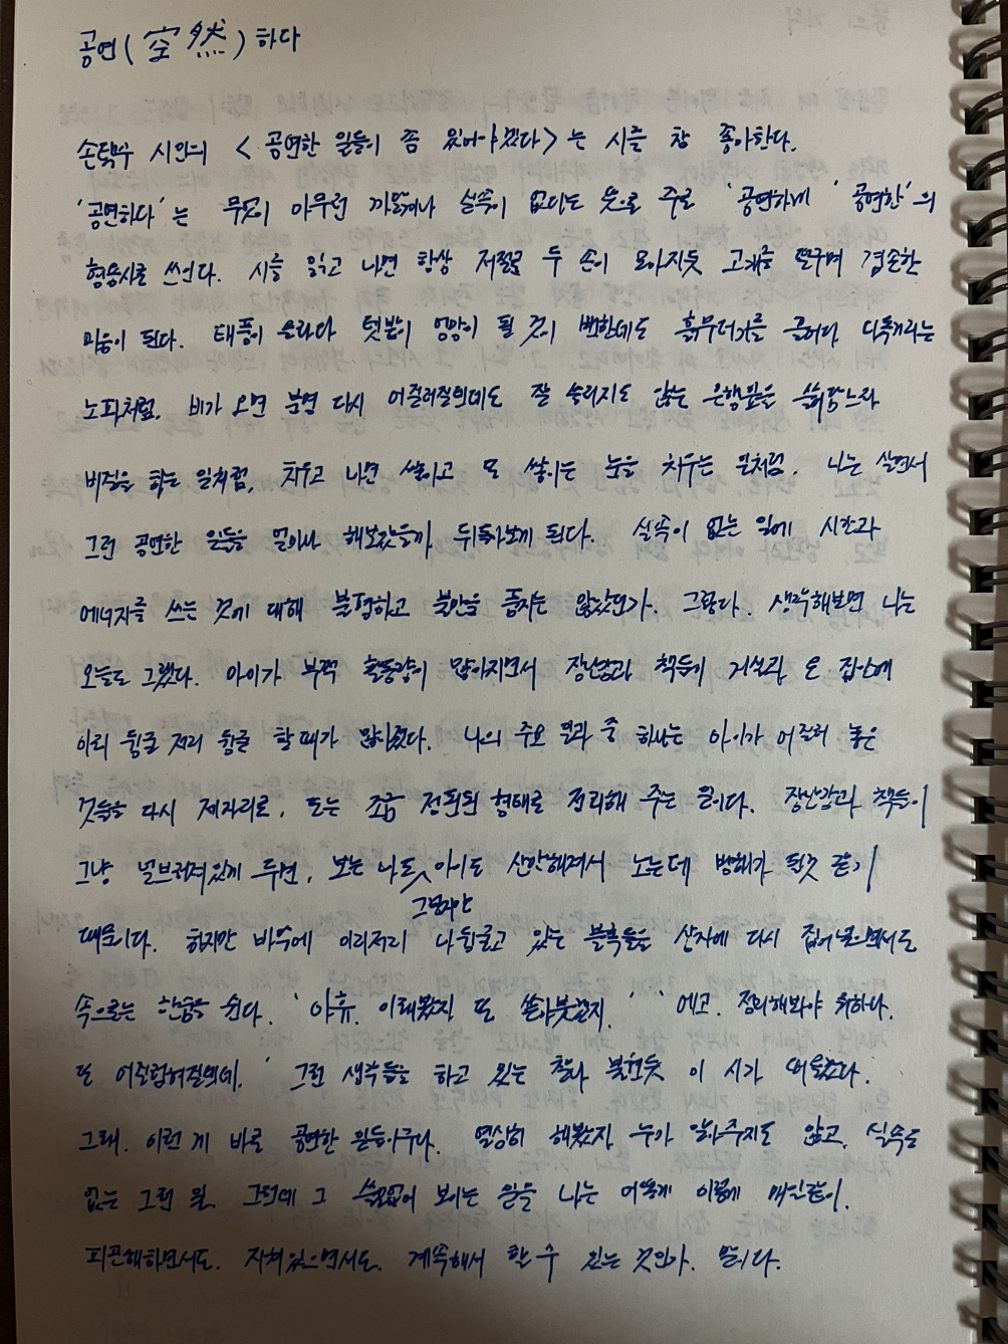 공연(空然)하다
손택수 시인의 <공연한 일들이 좀 있어야겠다>는 시를 참 좋아한다.
'공연하다'는 무엇이 아무런 까닭이나 실속이 없다는 뜻으로 주로 '공연하게' '공연한'의
형용사로 쓰인다. 시를 읽고 나면 항상 저절로 두 손이 모아지듯 고개를 떨구며 겸손한
마음이 된다. 태풍이 올라와 텃밭이 엉망이 될 것이 뻔한데도 흙무더기를 끌어다 다독거리는
노피처럼. 비가 오면 분명 다시 어질러질텐데도 잘 쓸리지도 않는 은행잎을 쓸어담느라
비질을 하는 일처럼, 치우고 나면 쌓이고 또 쌓이는 눈을 치우는 일처럼. 나는 살면서
그런 공연한 일들을 얼마나 해보았을까 뒤돌아보게 된다. 실속이 없는 일에 시간과
에너지를 쓰는 것에 대해 불평하고 불만을 품지는 않았던가. 그렇다. 생각해보면 나는
오늘도 그랬다. 아이가 부쩍 활동량이 많아지면서 장난감과 책들이 거실과 온 집안에
이리 뒹굴 저리 뒹굴 할 때가 많아졌다. 나의 주요 일과 중 하나는 아이가 어질러 놓은
것들을 다시 제자리로, 또는 조금 정돈된 형태로 정리해 주는 일이다. 장난감과 책들이
그냥 널브러져있게 두면, 보는 나도 아이도 산만해져서 노는데 방해가 될것 같기
그렇지만
때문이다. 하지만 바닥에 이리저리 나뒹굴고 있는 블록들을 상자에 다시 집어넣으면서도
속으로는 한숨을 쉰다. '아휴. 이래봤자 또 쏟아붓겠지.' '에고. 정리해봐야 뭐하나.
또 어질럽혀질텐데.' 그런 생각들을 하고 있는 찰나 불현듯 이 시가 떠올랐다.
그래. 이런 게 바로 공연한 일들이구나. 열심히 해봤자 누가 알아주지도 않고, 실속도
없는 그런 일. 그런데 그 쓸모없어 보이는 일을 나는 어떻게 이렇게 매일같이.
피곤해하면서도. 지쳐있으면서도. 계속해서 할 수 있는 것인가. 말이다.